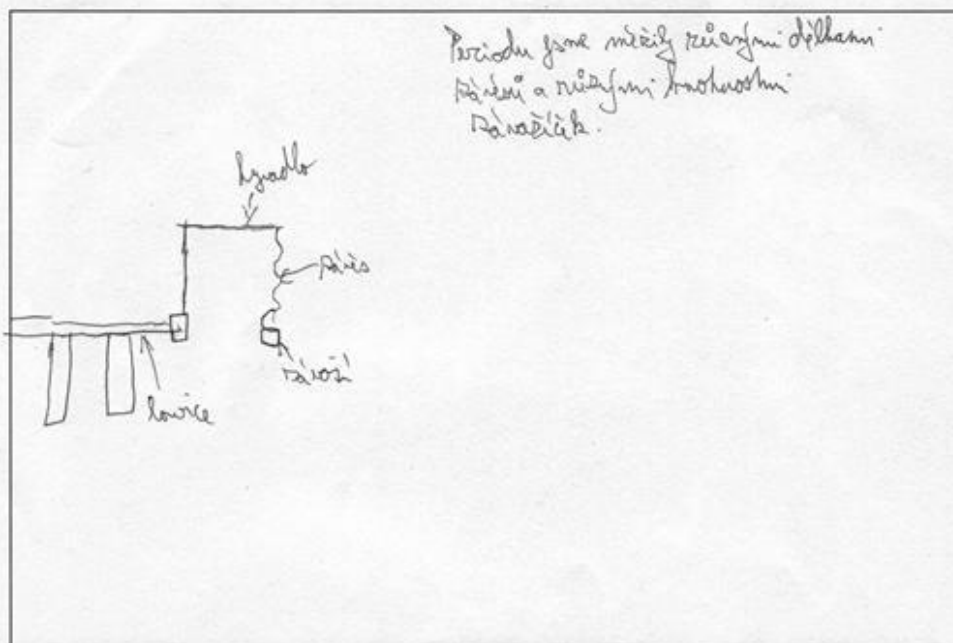 Periodu jsme měřily různými délkami
závěsů a různými hmotnostmi
závažíček.
kyvadlo
závěs
závaží
lavice